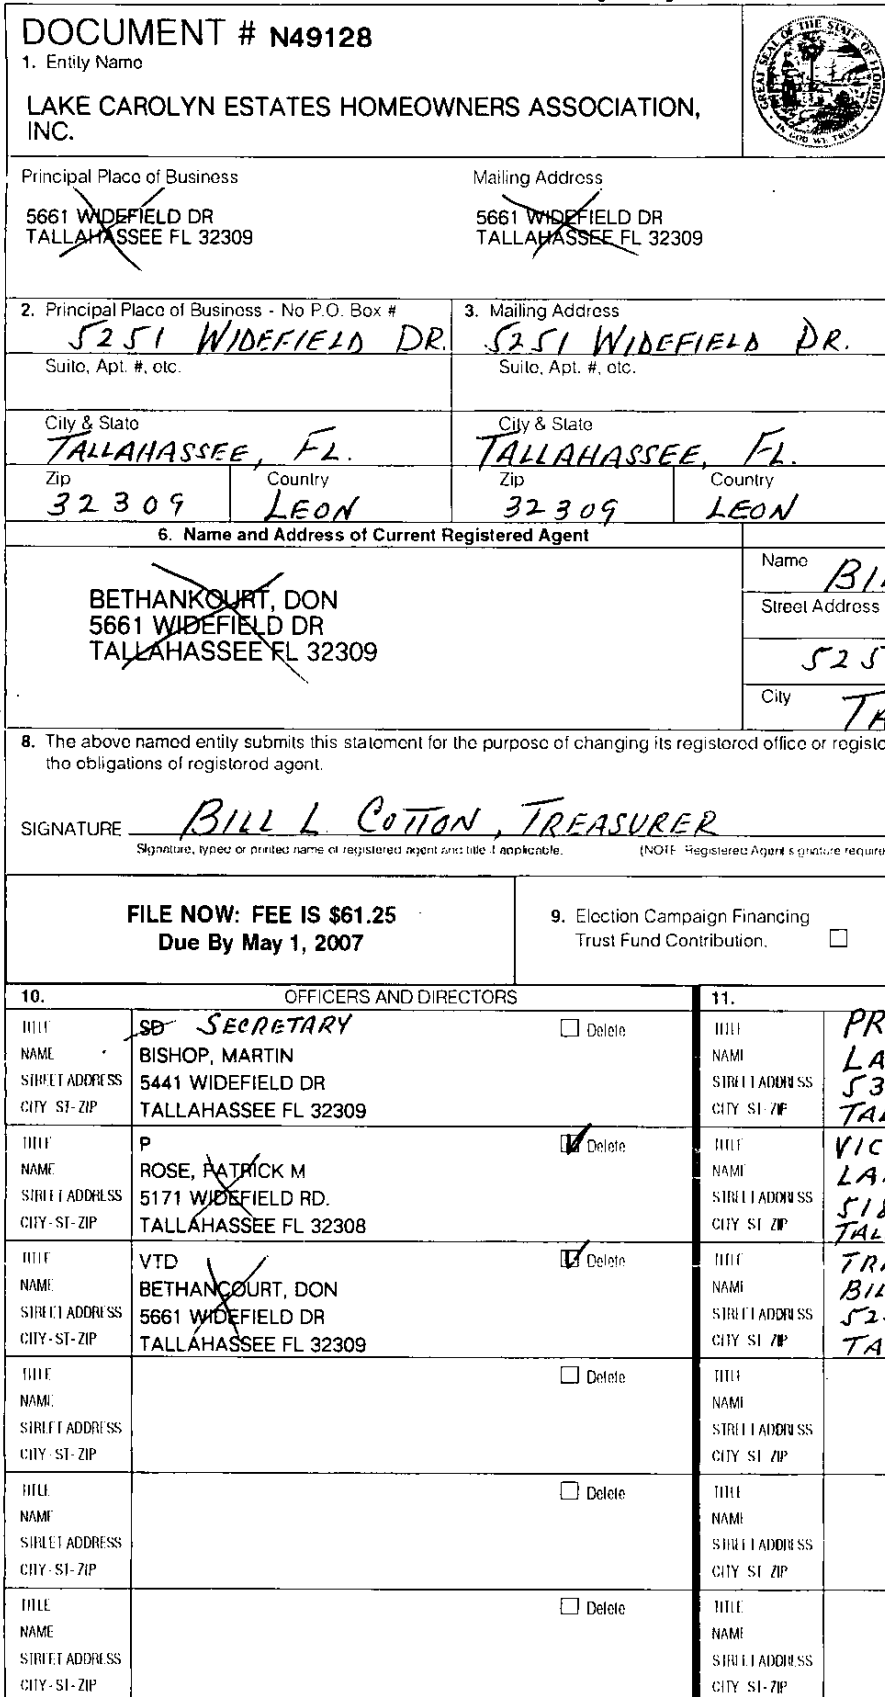 DOCUMENT # N49128
1. Entity Name
LAKE CAROLYN ESTATES HOMEOWNERS ASSOCIATION,
INC.
GREAT SEAL OF THE STATE OF FLORIDA
IN GOD WE TRUST
Principal Place of Business
5661 WIDEFIELD DR
TALLAHASSEE FL 32309
Mailing Address
5661 WIDEFIELD DR
TALLAHASSEE FL 32309
2. Principal Place of Business - No P.O. Box #
5251 WIDEFIELD DR.
3. Mailing Address
5251 WIDEFIELD DR.
Suite, Apt. #, etc.
Suite, Apt. #, etc.
City & State
TALLAHASSEE, FL.
City & State
TALLAHASSEE, FL.
Zip
32309
Country
LEON
Zip
32309
Country
LEON
6. Name and Address of Current Registered Agent
BETHANKOURT, DON
5661 WIDEFIELD DR
TALLAHASSEE FL 32309
Name
Street Address
525
City
TA
8. The above named entity submits this statement for the purpose of changing its registered office or registe
the obligations of registered agent.
SIGNATURE BILL L COTTON, TREASURER
Signature, typed or printed name of registered agent and title if applicable. (NOTE Registered Agent signature require
FILE NOW: FEE IS $61.25
Due By May 1, 2007
9. Election Campaign Financing
Trust Fund Contribution.
10. OFFICERS AND DIRECTORS
11.
TITLE SD SECRETARY Delete
NAME BISHOP, MARTIN
STREET ADDRESS 5441 WIDEFIELD DR
CITY ST-ZIP TALLAHASSEE FL 32309
TITLE PR
NAME LA
STREET ADDRESS 53
CITY ST-ZIP TAL
TITLE P Delete
NAME ROSE, PATRICK M
STREET ADDRESS 5171 WIDEFIELD RD.
CITY-ST-ZIP TALLAHASSEE FL 32308
TITLE VIC
NAME LA
STREET ADDRESS 518
CITY ST ZIP TAL
TITLE VTD Delete
NAME BETHANCOURT, DON
STREET ADDRESS 5661 WIDEFIELD DR
CITY-ST-ZIP TALLAHASSEE FL 32309
TITLE TRA
NAME BIL
STREET ADDRESS 52
CITY ST ZIP TA
TITLE Delete
NAME
STREET ADDRESS
CITY-ST-ZIP
TITLE
NAME
STREET ADDRESS
CITY ST ZIP
TITLE Delete
NAME
STREET ADDRESS
CITY-ST-ZIP
TITLE
NAME
STREET ADDRESS
CITY ST ZIP
TITLE Delete
NAME
STREET ADDRESS
CITY-ST-ZIP
TITLE
NAME
STREET ADDRESS
CITY ST-ZIP